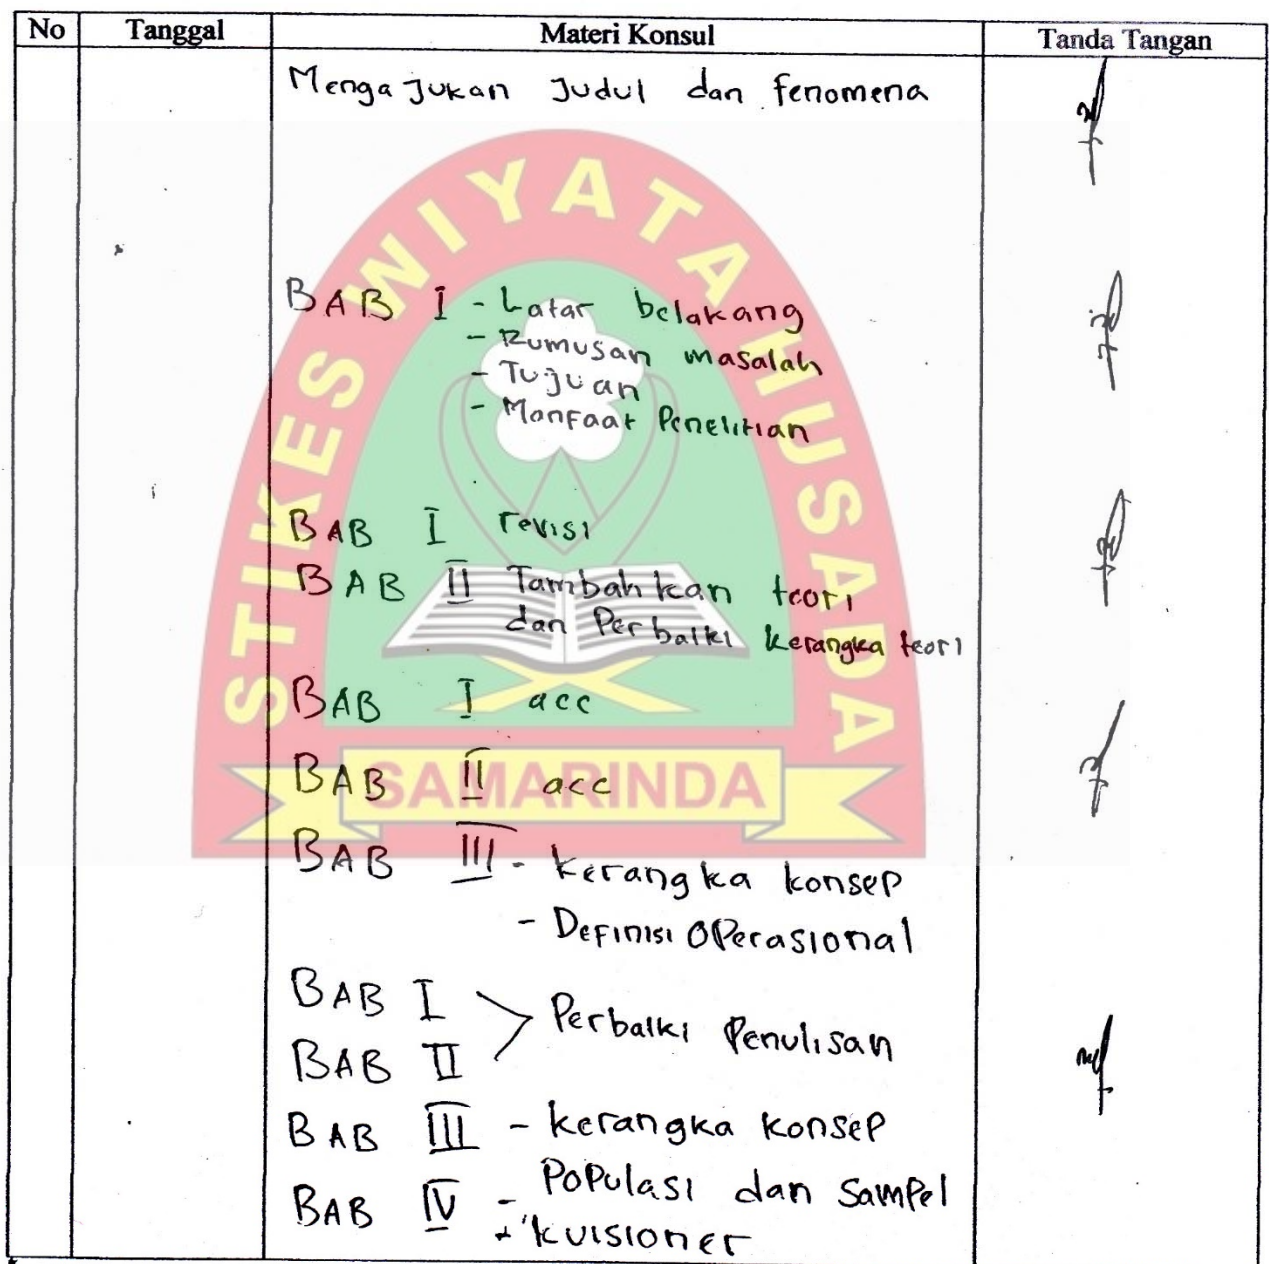 No Tanggal Materi Konsul Tanda Tangan
Mengajukan Judul dan fenomena
STIKES WIYATA HUSADA
BAB I - Latar belakang
- Rumusan masalah
- Tujuan
- Manfaat Penelitian
BAB I revisi
BAB II Tambahkan teori
dan Perbaiki kerangka teori
BAB I acc
BAB II acc
SAMARINDA
BAB III - kerangka konsep
- Definisi Operasional
BAB I > Perbaiki Penulisan
BAB II
BAB III - kerangka konsep
BAB IV - Populasi dan Sampel
+ kuisioner